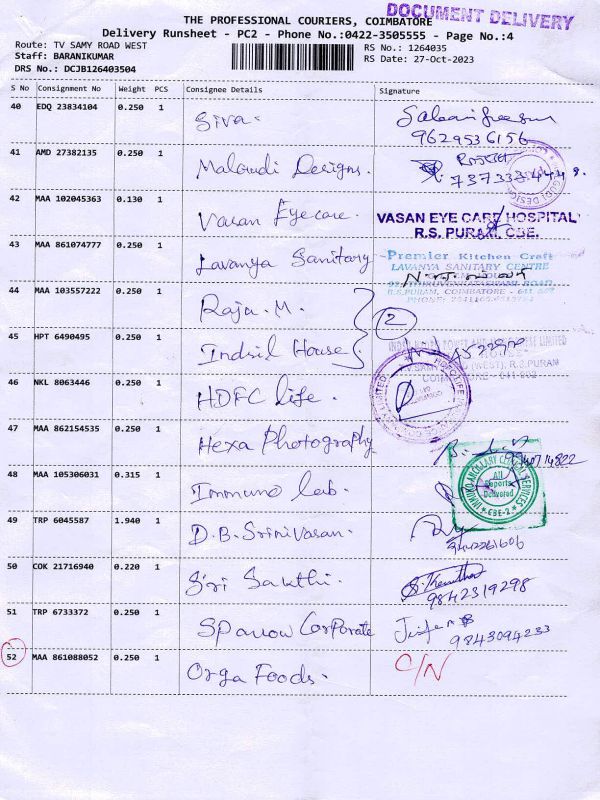 DOCUMENT DELIVERY
THE PROFESSIONAL COURIERS, COIMBATORE
Delivery Runsheet - PC2 - Phone No.:0422-3505555 - Page No.:4
Route: TV SAMY ROAD WEST
RS No.: 1264035
Staff: BARANIKUMAR
RS Date: 27-Oct-2023
DRS No.: DCJB126403504
S No Consignment No Weight PCS Consignee Details Signature
40 EDQ 23834104 0.250 1 Siva.
9629536156
41 AMD 27382135 0.250 1 Maloudi Designs.
42 MAA 102045363 0.130 1 Vasan Eyecare.
VASAN EYE CARE HOSPITAL
R.S. PURAM, CBE.
43 MAA 861074777 0.250 1 Lavanya Sanitary
Premier Kitchen Craft
LAVANYA SANITARY CENTRE
R.S.PURAM, COIMBATORE - 641 002
44 MAA 103557222 0.250 1 Raja. M. 2
45 HPT 6490495 0.250 1 Indsil House
46 NKL 8063446 0.250 1 HDFC life.
47 MAA 862154535 0.250 1 Hexa Photography
48 MAA 105306031 0.315 1 Immuno lab.
IMMUNO-ANCILLARY CLINICAL SERVICES
All Reports Delivered
* CBE-2 *
49 TRP 6045587 1.940 1 D.B. Srinivasan.
50 COK 21716940 0.220 1 Sri Sakthi.
9842319298
51 TRP 6733372 0.250 1 Sparrow Corporate
9843094233
52 MAA 861088052 0.250 1 Orga Foods. C/N